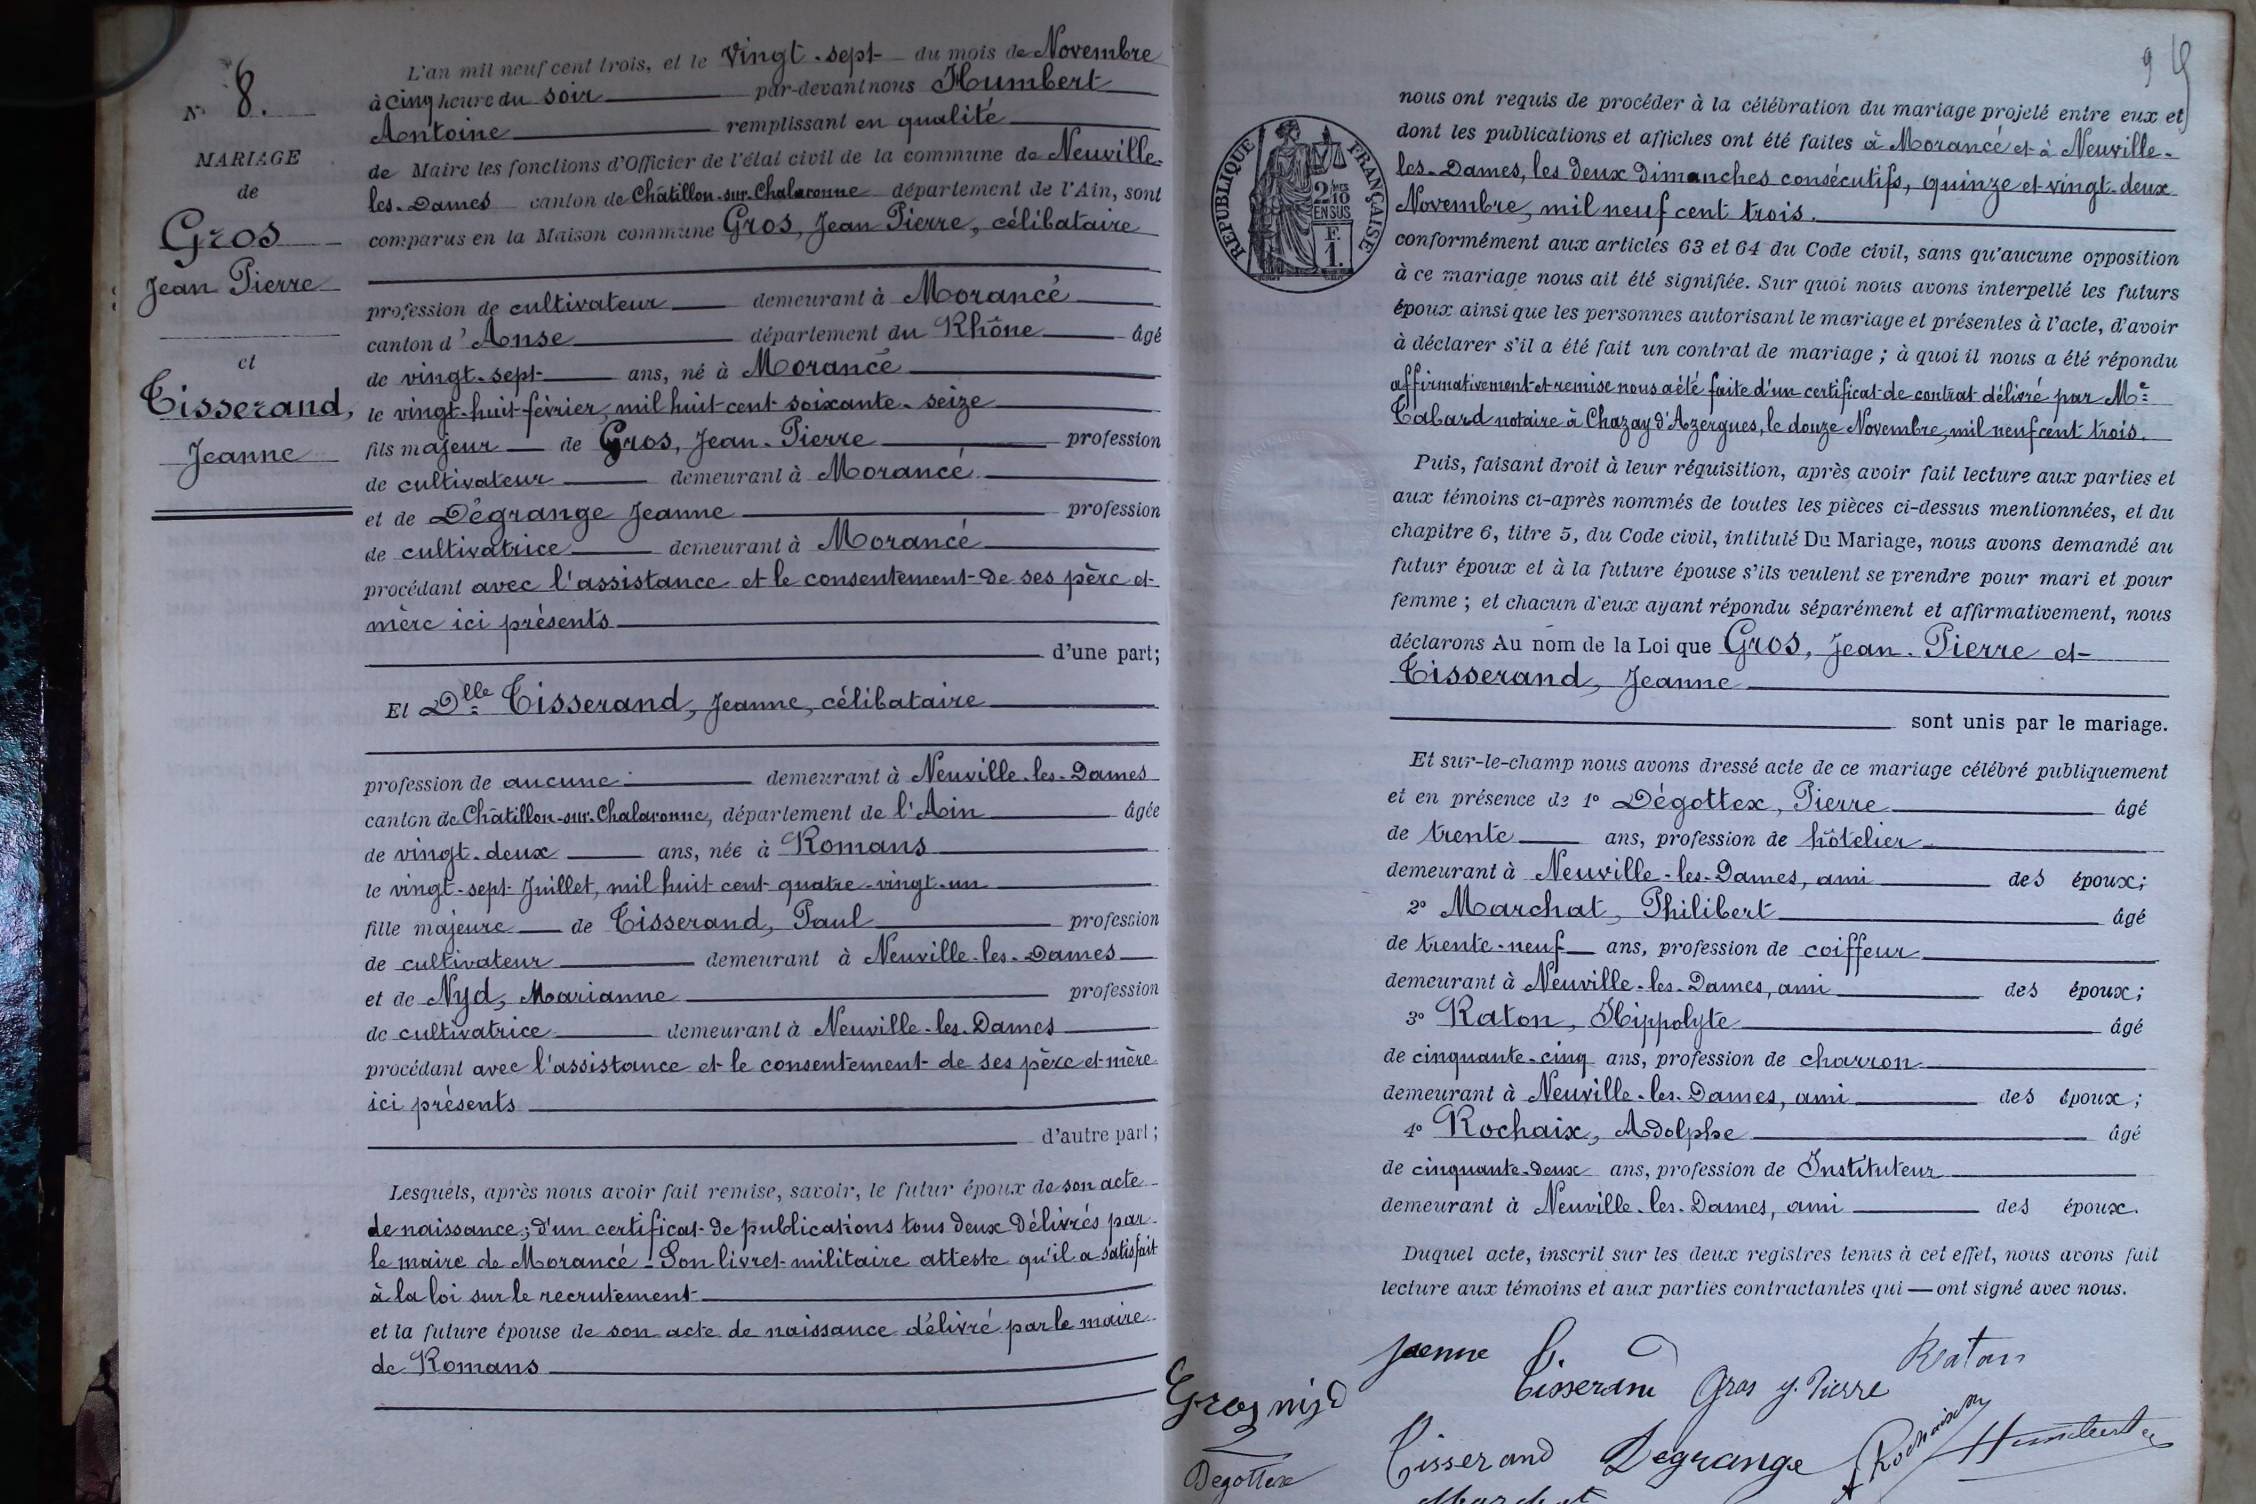 6
N° 8.
MARIAGE
de
Gros
Jean Pierre
et
Tisserand,
Jeanne
L'an mil neuf cent trois, et le Vingt-sept du mois de Novembre
à cinq heure du soir par-devant nous Humbert
Antoine remplissant en qualité
de Maire les fonctions d'Officier de l'état civil de la commune de Neuville-
les-Dames canton de Châtillon-sur-Chalaronne département de l'Ain, sont
comparus en la Maison commune Gros, Jean Pierre, célibataire
profession de cultivateur demeurant à Morancé
canton d'Anse département du Rhône âgé
de vingt-sept ans, né à Morancé
le vingt-huit février, mil huit cent soixante-seize
fils majeur de Gros, Jean-Pierre profession
de cultivateur demeurant à Morancé
et de Dégrange Jeanne profession
de cultivatrice demeurant à Morancé
procédant avec l'assistance et le consentement de ses père et
mère ici présents
d'une part;
Et Dlle Tisserand, Jeanne, célibataire
profession de aucune demeurant à Neuville-les-Dames
canton de Châtillon-sur-Chalaronne, département de l'Ain âgée
de vingt-deux ans, née à Romans
le vingt-sept Juillet, mil huit cent quatre-vingt-un
fille majeure de Tisserand, Paul profession
de cultivateur demeurant à Neuville-les-Dames
et de Nyd, Marianne profession
de cultivatrice demeurant à Neuville-les-Dames
procédant avec l'assistance et le consentement de ses père et mère
ici présents
d'autre part;
Lesquels, après nous avoir fait remise, savoir, le futur époux de son acte
de naissance; d'un certificat de publications tous deux délivrés par
le maire de Morancé. Son livret militaire atteste qu'il a satisfait
à la loi sur le recrutement
et la future épouse de son acte de naissance délivré par le maire
de Romans
9
RÉPUBLIQUE FRANÇAISE
2/10
EN SUS
F
1.
nous ont requis de procéder à la célébration du mariage projeté entre eux et
dont les publications et affiches ont été faites à Morancé et à Neuville-
les-Dames, les deux dimanches consécutifs, quinze et vingt-deux
Novembre, mil neuf cent trois.
conformément aux articles 63 et 64 du Code civil, sans qu'aucune opposition
à ce mariage nous ait été signifiée. Sur quoi nous avons interpellé les futurs
époux ainsi que les personnes autorisant le mariage et présentes à l'acte, d'avoir
à déclarer s'il a été fait un contrat de mariage; à quoi il nous a été répondu
affirmativement et remise nous a été faite d'un certificat de contrat délivré par Me
Tabard notaire à Chazay d'Azergues, le douze Novembre, mil neuf cent trois.
Puis, faisant droit à leur réquisition, après avoir fait lecture aux parties et
aux témoins ci-après nommés de toutes les pièces ci-dessus mentionnées, et du
chapitre 6, titre 5, du Code civil, intitulé Du Mariage, nous avons demandé au
futur époux et à la future épouse s'ils veulent se prendre pour mari et pour
femme; et chacun d'eux ayant répondu séparément et affirmativement, nous
déclarons Au nom de la Loi que Gros, Jean-Pierre et
Tisserand, Jeanne
sont unis par le mariage.
Et sur-le-champ nous avons dressé acte de ce mariage célébré publiquement
et en présence de 1° Dégottex, Pierre âgé
de trente ans, profession de hôtelier
demeurant à Neuville-les-Dames, ami des époux;
2° Marchat, Philibert âgé
de trente-neuf ans, profession de coiffeur
demeurant à Neuville-les-Dames, ami des époux;
3° Raton, Hippolyte âgé
de cinquante-cinq ans, profession de charron
demeurant à Neuville-les-Dames, ami des époux;
4° Rochaix, Adolphe âgé
de cinquante-deux ans, profession de Instituteur
demeurant à Neuville-les-Dames, ami des époux.
Duquel acte, inscrit sur les deux registres tenus à cet effet, nous avons fait
lecture aux témoins et aux parties contractantes qui ont signé avec nous.
Jeanne Tisserand Gros J. Pierre Raton
Gros nyd
Tisserand Degrange A Rochaix Humbert
Degottex
Marchat